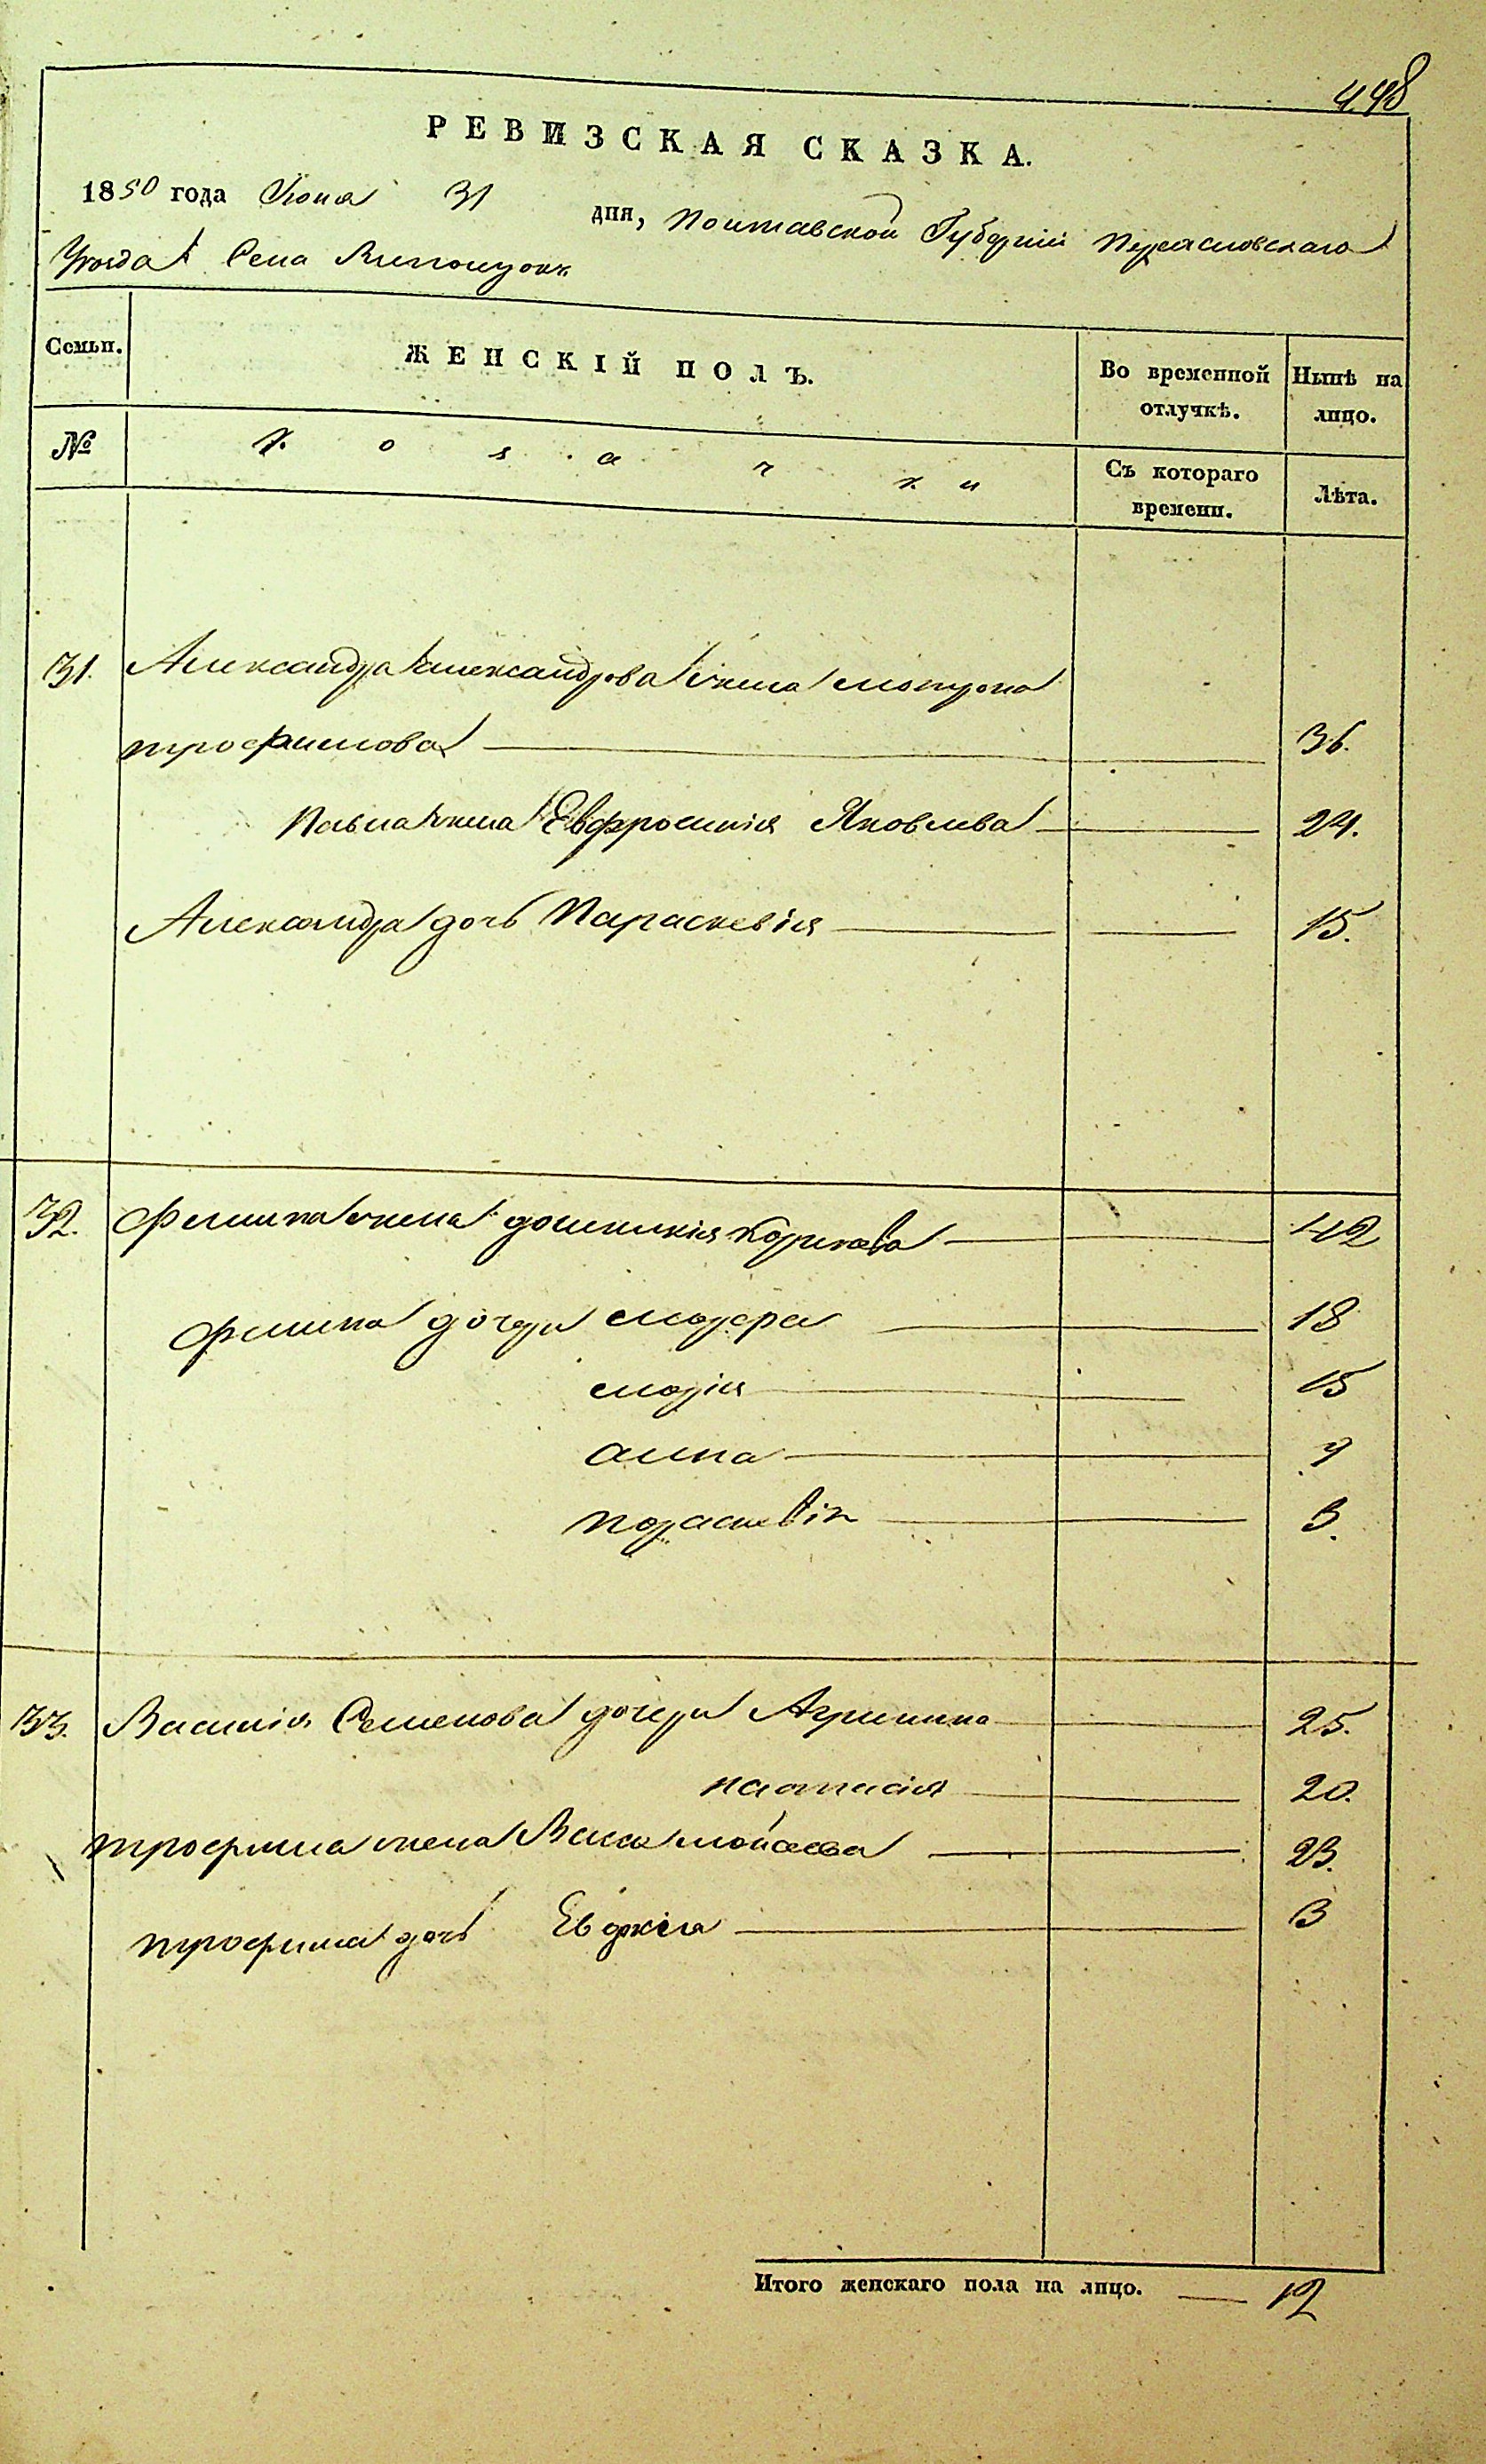 448
РЕВИЗСКАЯ СКАЗКА.
1850 года Іюня 31 дня, Полтавской Губерніи Переясловскаго
Уезда Села
Семьи. ЖЕНСКІЙ ПОЛЪ. Во временной отлучкѣ. Нынѣ на лицо.
№ козачки Съ котораго времени. Лѣта.
31. Александра александрова жена мотрона
трофимова 36.
Павла жена Евфросинія Яковлева 24.
Александра дочь Параскевія 15.
32. Филипа жена домникія 42
филипа дочери мавра 18
марія 15
анна 9
параскевія 3.
33. Василія Семенова дочери Агрипина 25.
настасія 20.
трофима жена Васса мойсеева 23.
трофима дочь Евдокія 3
Итого женскаго пола на лицо. 12